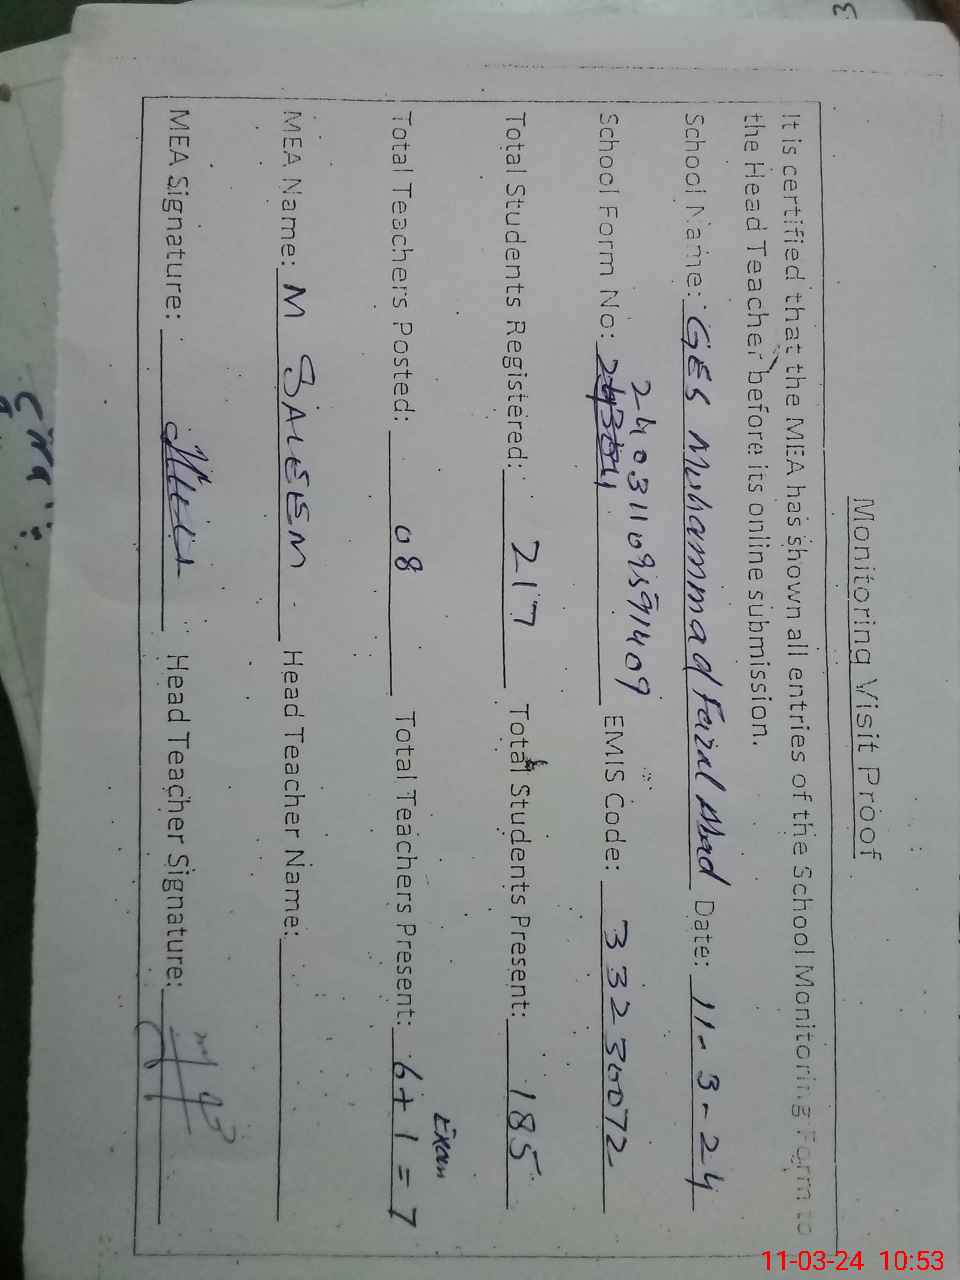 Monitoring Visit Proof
It is certified that the MEA has shown all entries of the School Monitoring Form to
the Head Teacher before its online submission.
School Name: GES Muhammad Faizal Abad Date: 11-3-24
24031109591409
School Form No: EMIS Code: 33230072
Total Students Registered: 217 Total Students Present: 185
Exam
Total Teachers Posted: 08 Total Teachers Present: 6+1=7
MEA Name: M SALEEM Head Teacher Name:
MEA Signature: Head Teacher Signature:
11-03-24 10:53